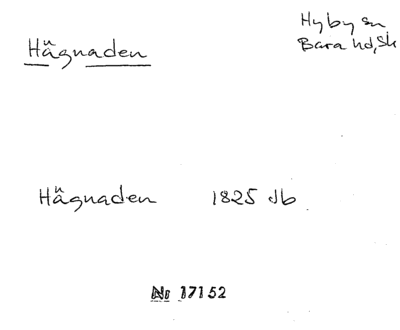 Hägnaden
Hyby sn
Bara hd, Sk
Hägnaden 1825 db
Nr 17152